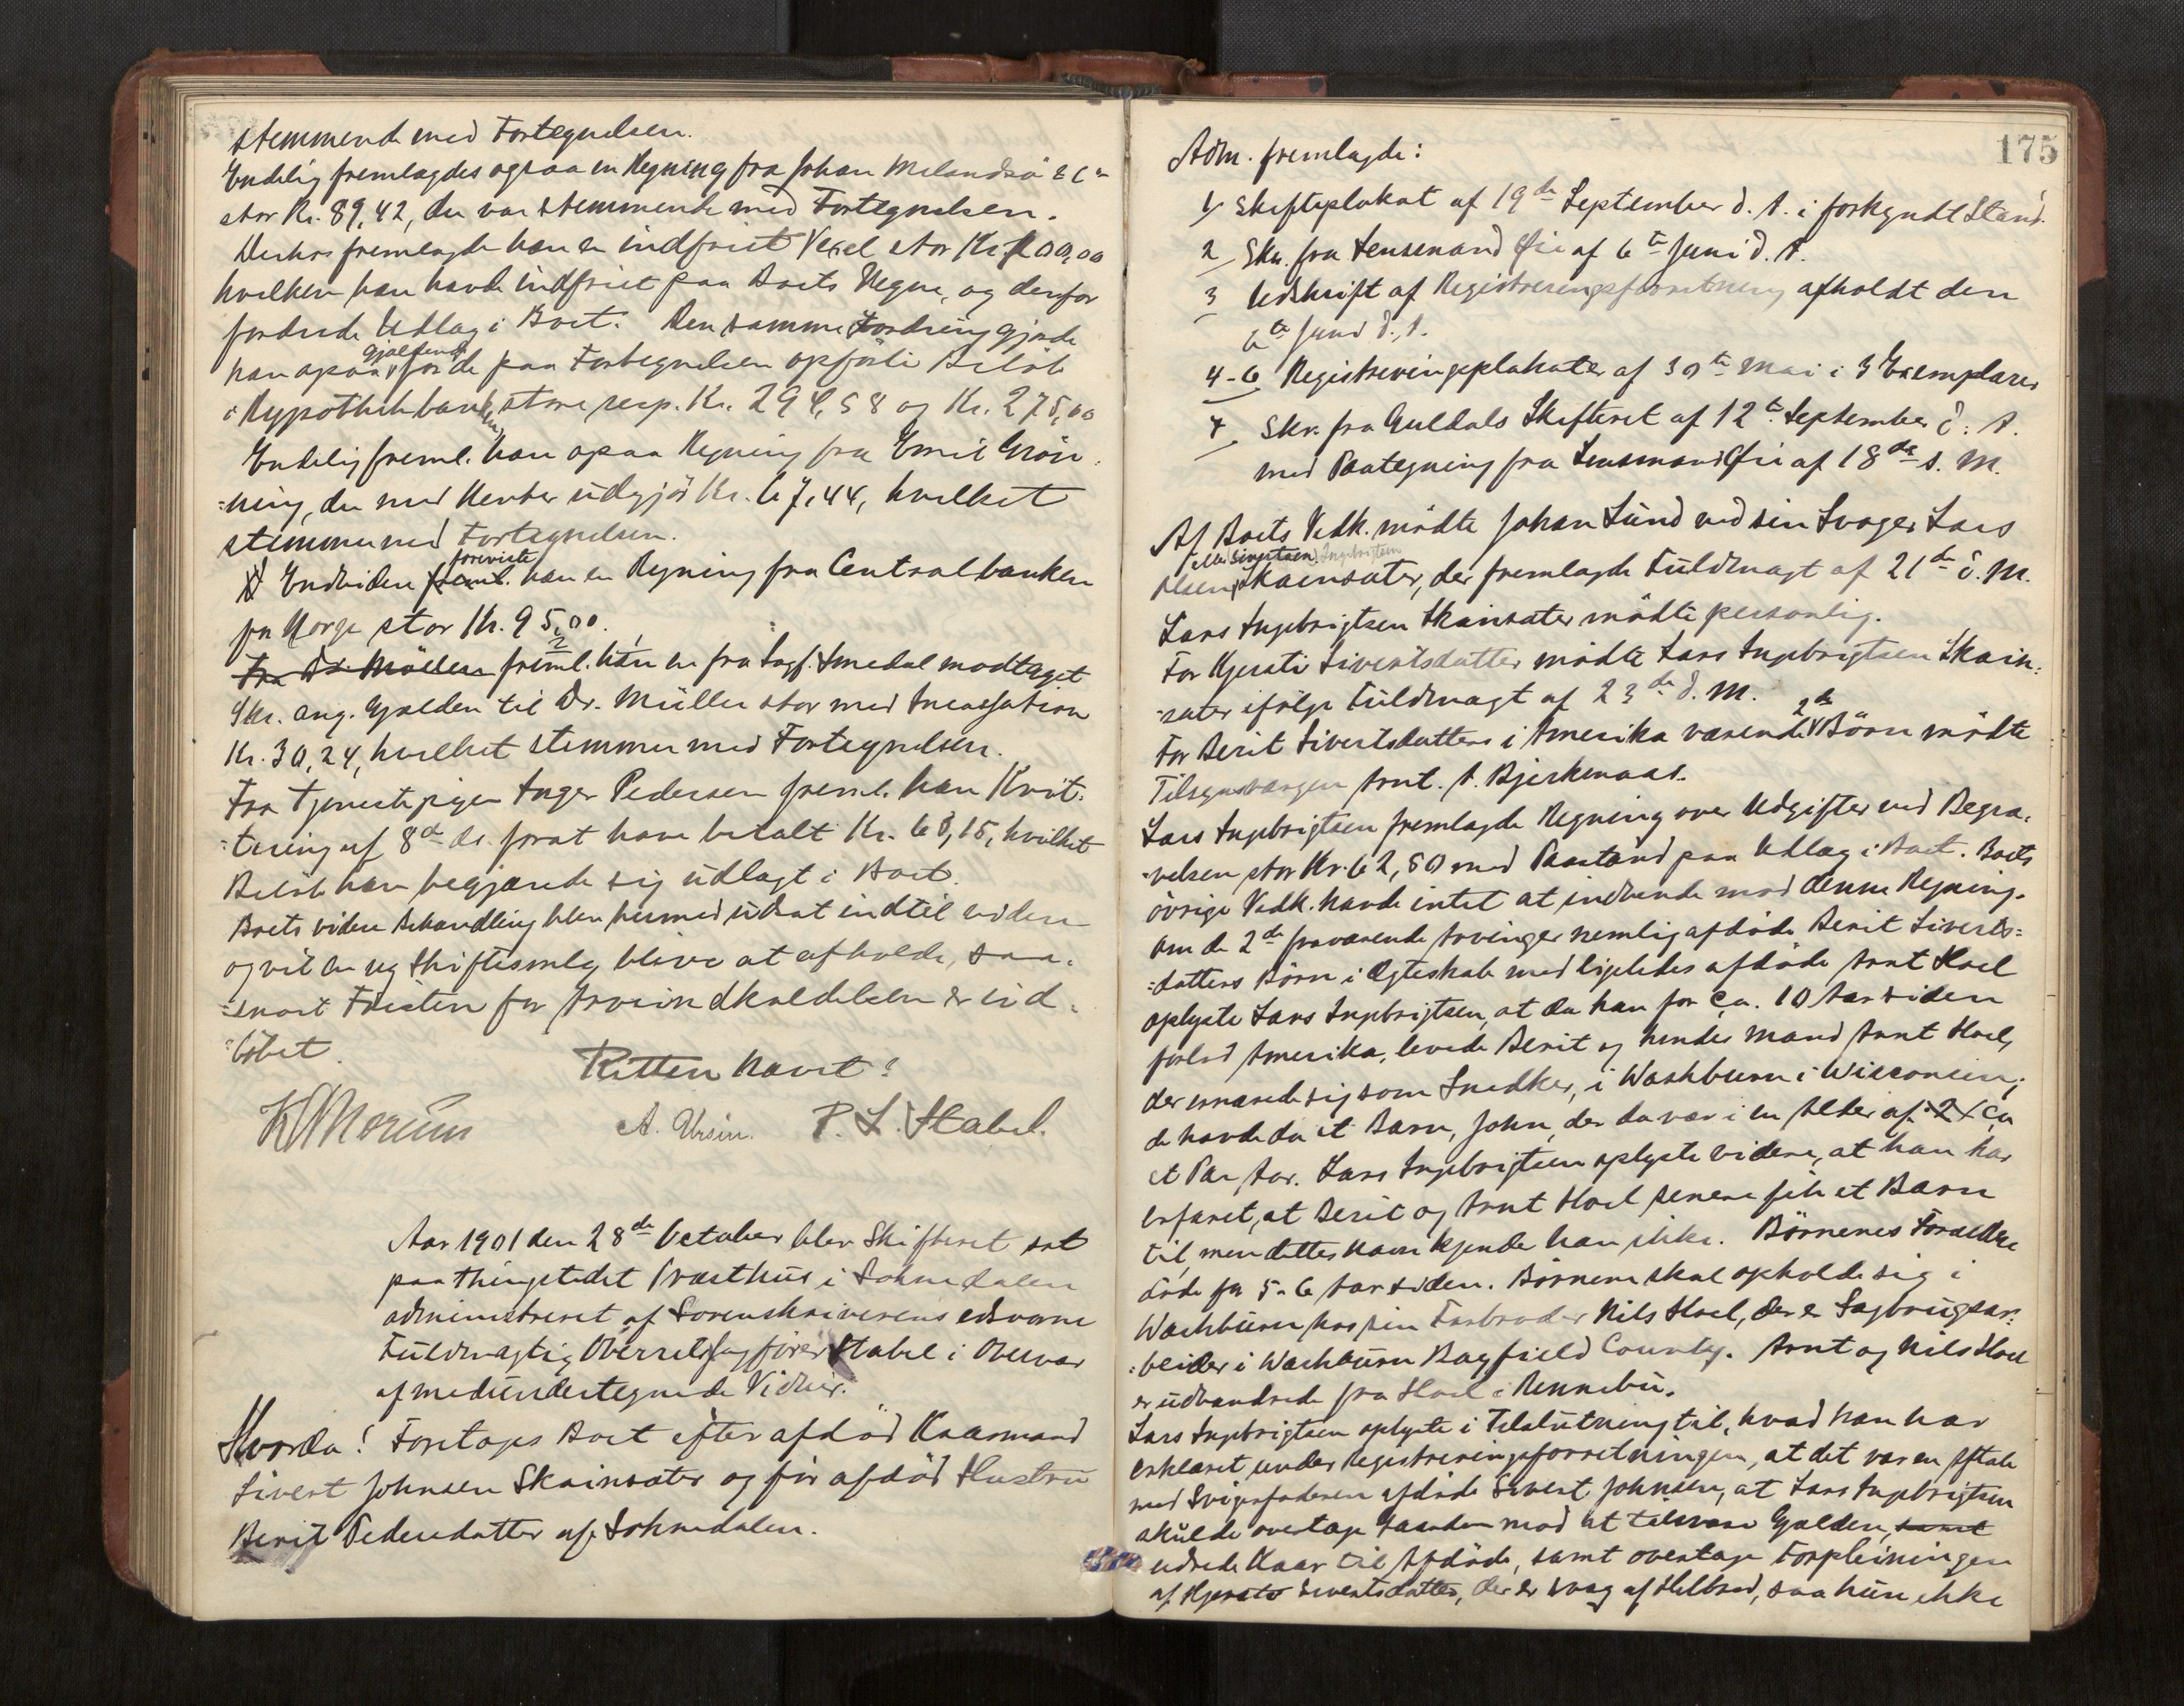 stemmende med Fortegnelsen.
Endelig fremlagdes ogsaa en Regning fra Johan Melandsö & Co
stor Kr. 89,42, der var stemmende med Fortegnelsen.
Derhos fremlagde han en indfriet Vexel stor Kr. 200,00
hvilken han havde indfriet paa Boets Vegne, og derfor
fordrede Udlag i Boet. Den samme Fordring gjorde
han ogsaa gjældende for de paa Fortegnelsen opførte Beløb
i Hypothekbanken, store resp. Kr. 294,58 og Kr. 275,00
Endelig freml. han ogsaa Regning fra Emil Grön-
=ning, der med Renter udgjør Kr. 67,44, hvilket
stemmer med Fortegnelsen.
Endvidere freml. foreviste han en Regning fra Centralbanken
for Norge stor Kr. 95,00.
Fra Dr. Müller freml. han en fra Sagf. Smedal modtaget
Skr. ang. Gjælden til Dr. Müller stor med Incassation
Kr. 30,24, hvilket stemmer med Fortegnelsen.
Fra Tjenestepigen Inger Pedersen freml. han Kvit-
=tering af 8de ds. for at have betalt Kr. 63,15, hvilket
Beløb han begjærede sig udlagt i Boet.
Boets videre Behandling blev hermed udsat indtil videre
og vil en ny Skiftesamlg blive at afholde, saa-
=snart Fristen for Proclamaindkaldelsen er ud-
=løbet.
Retten hævet:
A. Ursin. P. L. Stabel.
Aar 1901 den 28de October blev Skifteret sat
paa Thingstedet Præsthus i Soknedalen
administreret af Sorenskriverens edsvorne
Fuldmægtig Overretssagfører Stabel i Overvær
af medundertegnede Vidner.
Hvorda: Foretoges Boet efter afdød Kaarmand
Sivert Johnsen Skainsæter og før afdød Hustru
Berit Pedersdatter af Soknedalen.
175
Adm. fremlagde:
1/ Skifteplakat af 19de September d. A. i forkyndt Stand.
2/ Skr. fra Lensmand Øie af 6te Juni d. A.
3/ Udskrift af Registreringsforretning afholdt den
6te Juni d. A.
4-6/ Registreringsplakater af 30te Mai i 3 Exemplarer
7/ Skr. fra Guldals Skifteret af 12te September d. A.
med Paategning fra Lensmand Øie af 18de s. M.
Af Boets Vedk. mødte Johan Lund ved sin Svoger Lars
Olsen (eller Sivertsen) Ingebrigtsen Skainsæter, der fremlagde Fuldmagt af 21de d. M.
Lars Ingebrigtsen Skainsæter mødte personlig.
For Kjersti Sivertsdatter mødte Lars Ingebrigtsen Skain-
=sæter ifølge Fuldmagt af 23de d. M.
For Berit Sivertsdatters i Amerika værende 2de Börn mødte
Tilsynsværgen Arnt. A. Bjerkenaas.
Lars Ingebrigtsen fremlagde Regning over Udgifter ved Begra-
=velsen stor Kr. 62,50 med Paastand paa Udlæg i Boet. Boets
övrige Vedk. havde intet at indvende mod denne Regning.
Om de 2de fraværende Arvinger nemlig afdøde Berit Siverts=
=datters Börn i Ægteskab med ligeledes afdøde Arnt Hoel
oplyste Lars Ingebrigtsen, at da han for ca. 10 Aar siden
forlod Amerika, levede Berit og hendes Mand Arnt Hoel,
der ernærede sig som Snedker, i Washburn i Wisconsin;
de havde da et Barn, John, der da var i en Alder af 2 ca
et Par Aar. Lars Ingebrigtsen oplyste videre, at han har
erfaret, at Berit og Arnt Hoel senere fik et Barn
til, men dettes Navn kjender han ikke. Börnenes Forældre
døde for 5-6 Aar siden. Börnene skal opholde sig i
Washburn hos sin Farbroder Nils Hoel, der er Sagbrugsar-
=beider i Washburn Bayfield County. Arnt og Nils Hoel
er udvandrede fra Hoel i Rennebu.
Lars Ingebrigtsen oplyste i Tilslutning til, hvad han har
erklæret under Registreringsforretningen, at det var en Aftale
med Svigerfaderen afdøde Sivert Johnsen, at Lars Ingebrigtsen
skulde overtage Gaarden mod at tilsvare Gjælden, samt
udrede Kaar til Afdøde, samt overtage Forpleiningen
af Kjersti Sivertsdatter, der er svag af Helbred, saa hun ikke